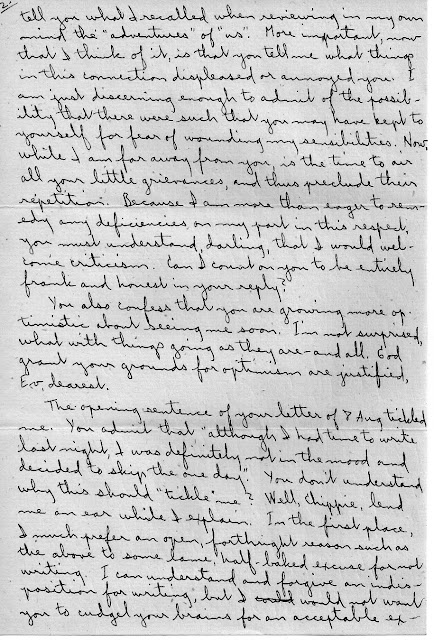 2.
tell you what I recalled when reviewing in my own
mind the "adventures" of "us". More important, now
that I think of it, is that you tell me what things
in this connection displeased or annoyed you. I
am just discerning enough to admit of the possib-
ility that there were such that you may have kept to
yourself for fear of wounding my sensibilities. Now,
while I am far away from you, is the time to air
all your little grievances, and thus preclude their
repetition. Because I am more than eager to rem-
edy any deficiencies on my part in this respect,
you must understand, darling, that I would wel-
come criticism. Can I count on you to be entirely
frank and honest in your reply?
You also confess that you are growing more op-
timistic about seeing me soon. I'm not surprised,
what with things going as they are - and all. God
grant your grounds for optimism are justified,
Ev, dearest.
The opening sentence of your letter of 7 Aug tickled
me. You admit that "although I had time to write
last night, I was definitely not in the mood and
decided to skip the one day". You don't understand
why this should "tickle" me? Well, Chippie, lend
me an ear while I explain. In the first place,
I much prefer an open, forthright reason such as
the above to some lame, half-baked excuse for not
writing. I can understand and forgive an indis-
position for writing, but I would not want
you to cudgel your brains for an acceptable ex-